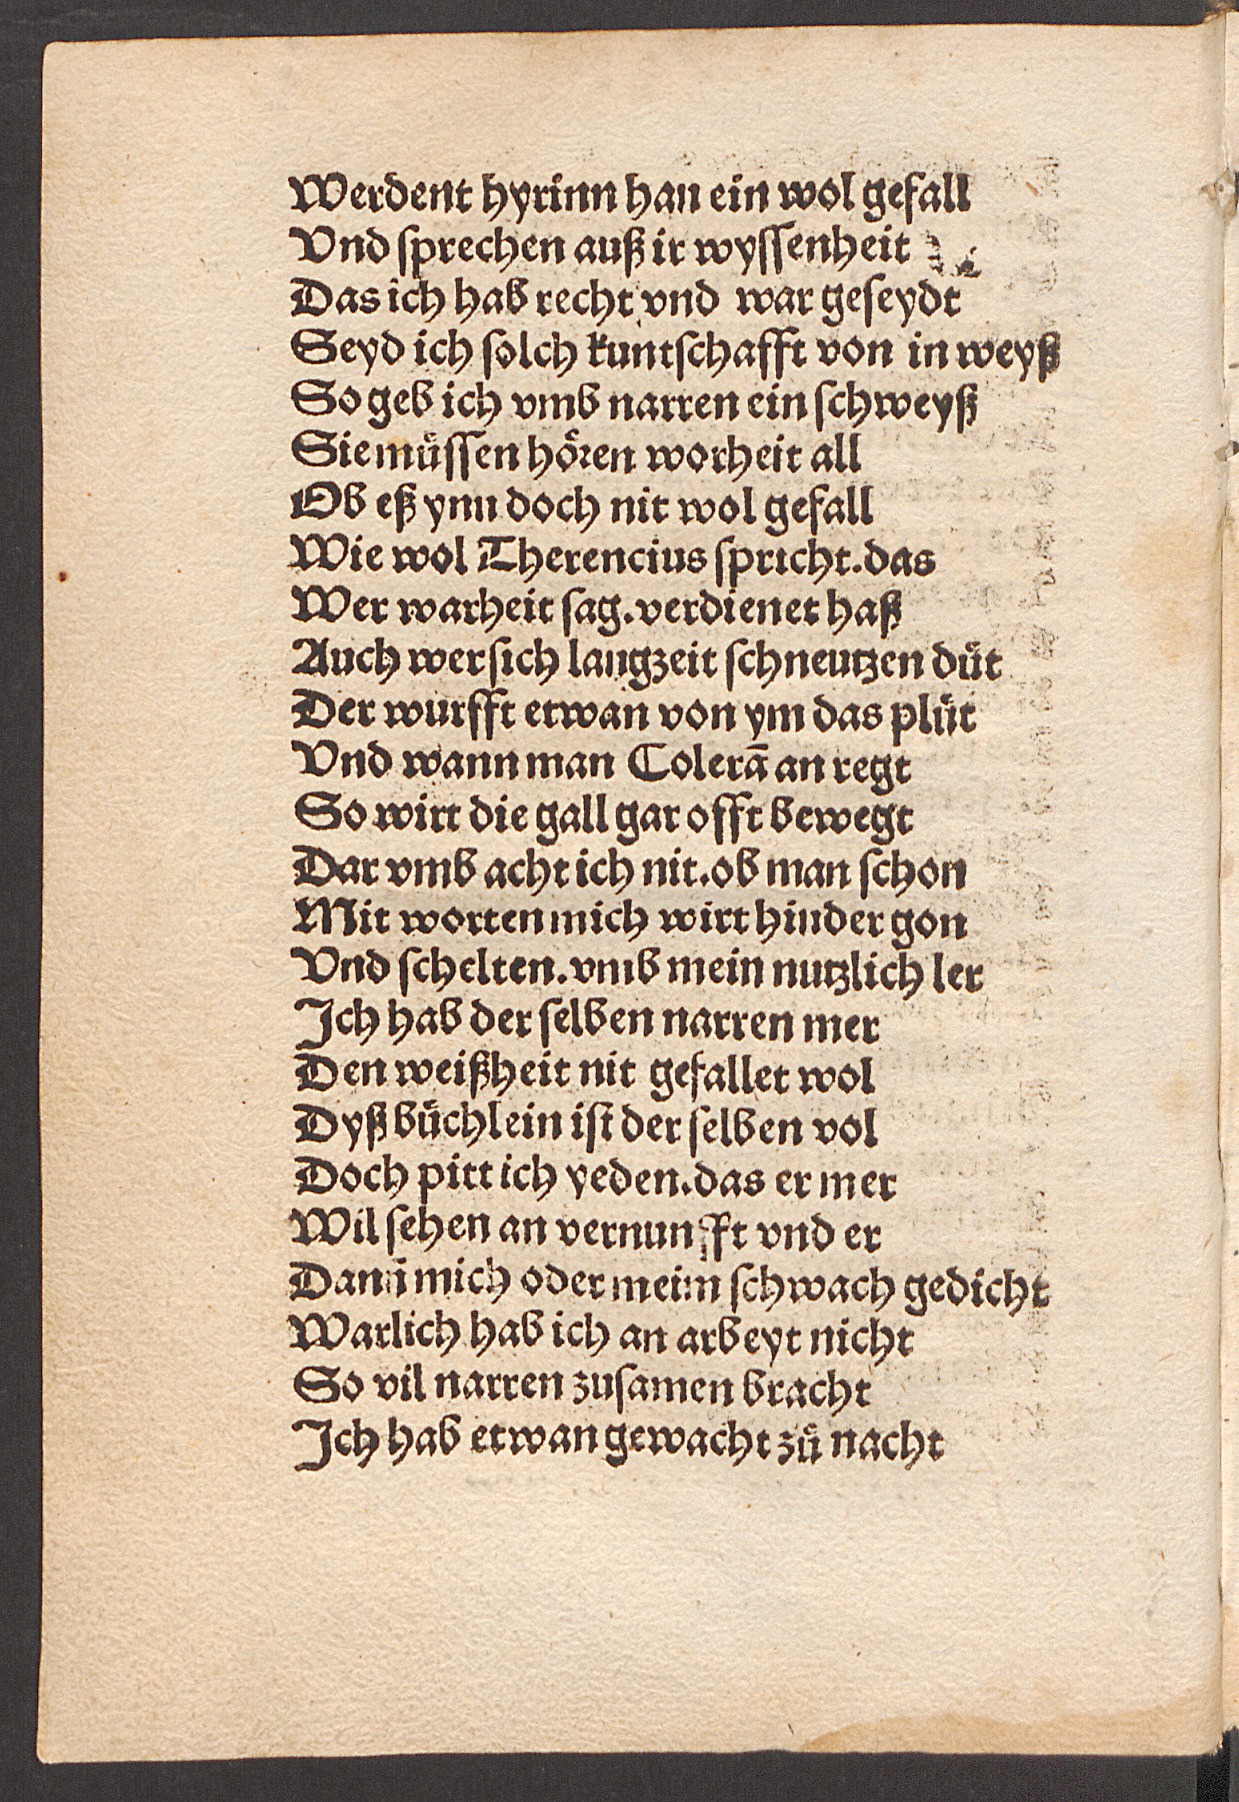 Werdent hyrinn han ein wol gefall
Vnd sprechen auß ir wyssenheit
Das ich hab recht vnd war geseydt
Seyd ich solch kuntschafft von in weyß
So geb ich vmb narren ein schweyß
Sie mu̇ssen hoͤren worheit all
Ob eß ynn doch nit wol gefall
Wie wol Therencius spricht. das
Wer warheit sag. verdienet haß
Auch wer sich langzeit schneutzen duͤt
Der wurfft etwan von ym das pluͤt
Vnd wann man Colerā an regt
So wirt die gall gar offt bewegt
Dar vmb acht ich nit. ob man schon
Mit worten mich wirt hinder gon
Vnd schelten. vmb mein nutzlich ler
Jch hab der selben narren mer
Den weißheit nit gefallet wol
Dyß buͤchlein ist der selben vol
Doch pitt ich yeden. das er mer
Wil sehen an vernunfft vnd er
Dann mich oder meim schwach gedicht
Warlich hab ich an arbeyt nicht
So vil narren zusamen bracht
Jch hab etwan gewacht zuͤ nacht